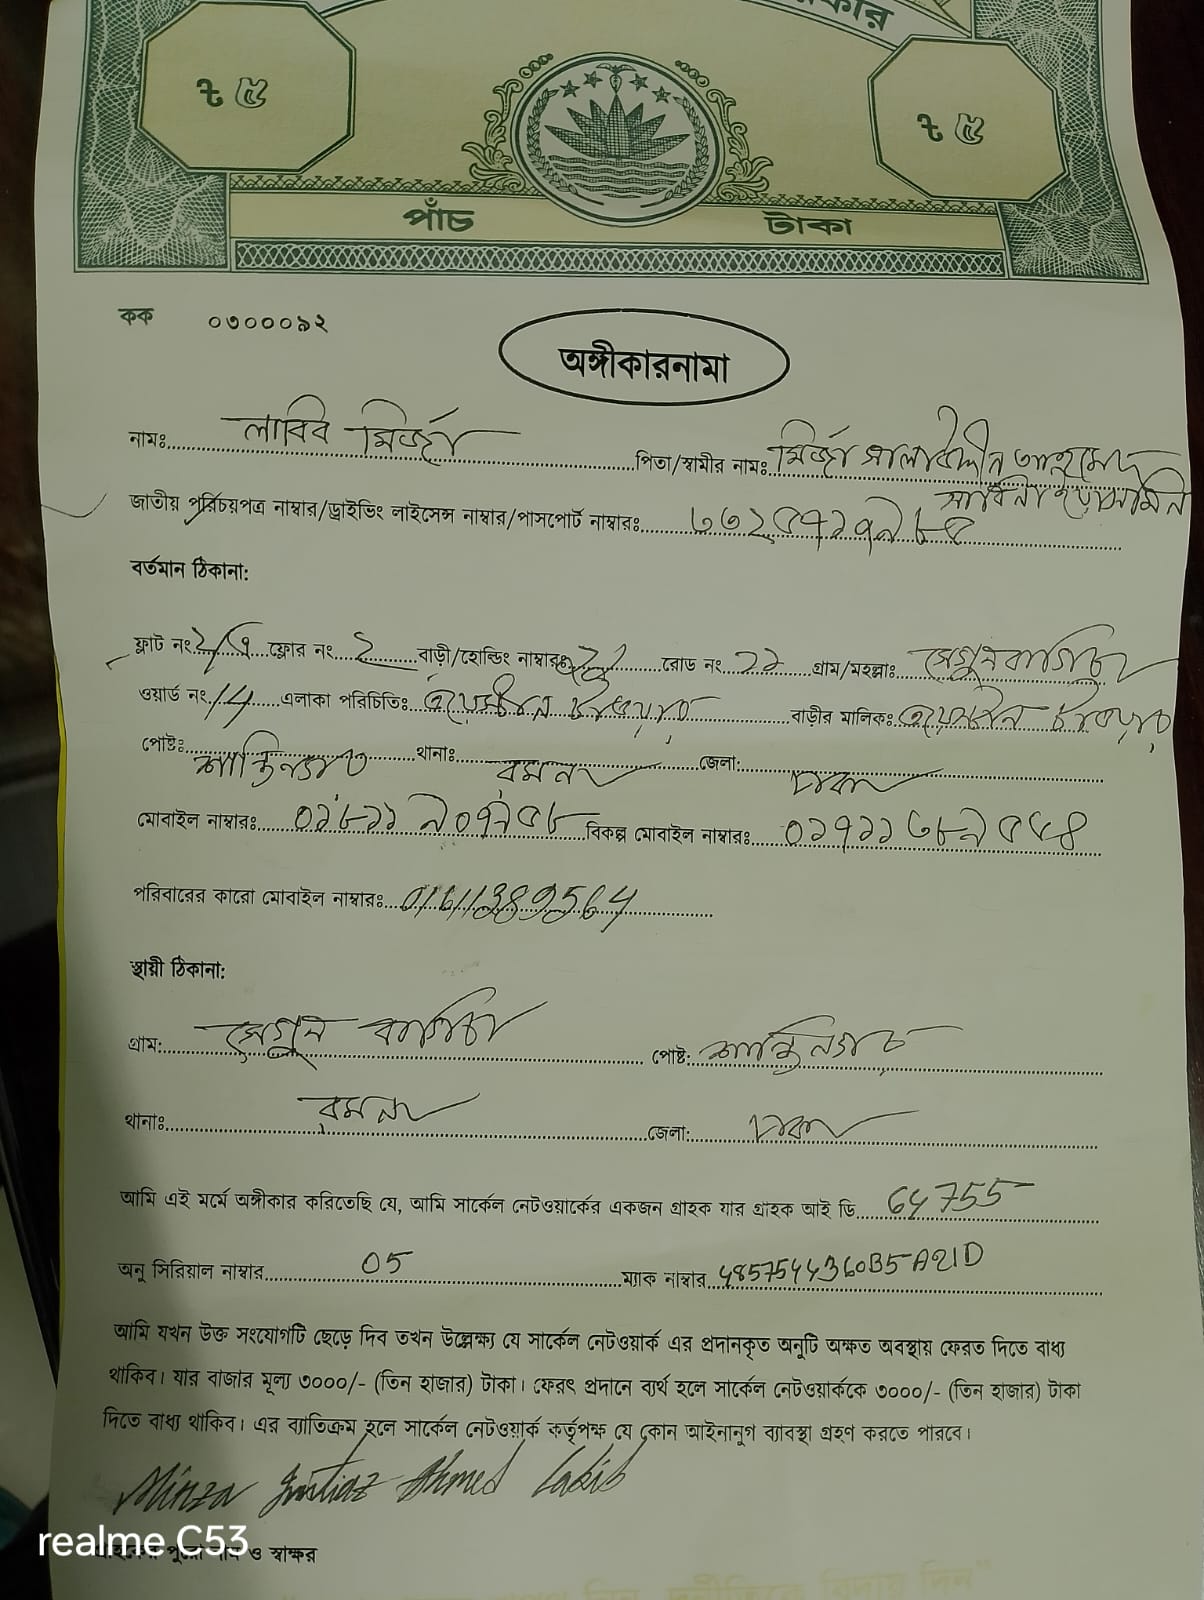 কার
৳ ৫
৳ ৫
পাঁচ টাকা
কক ০৩০০০৯২
অঙ্গীকারনামা
নামঃ লাবিব মির্জা পিতা/স্বামীর নামঃ মির্জা সালাউদ্দীন আহমেদ
সাবিনা ইয়াসমিন
জাতীয় পরিচয়পত্র নাম্বার/ড্রাইভিং লাইসেন্স নাম্বার/পাসপোর্ট নাম্বারঃ
বর্তমান ঠিকানা:
ফ্লাট নং ফ্লোর নং 2 বাড়ী/হোল্ডিং নাম্বারঃ রোড নং গ্রাম/মহল্লাঃ সেগুনবাগিচা
ওয়ার্ড নং এলাকা পরিচিতিঃ বাড়ীর মালিকঃ
পোষ্টঃ শান্তিনগর থানাঃ রমনা জেলা: ঢাকা
মোবাইল নাম্বারঃ ০১৮১১৯০৭৭৫৮ বিকল্প মোবাইল নাম্বারঃ
পরিবারের কারো মোবাইল নাম্বারঃ 01611389564
স্থায়ী ঠিকানা:
গ্রাম: সেগুন বাগিচা পোষ্ট: শান্তিনগর
থানাঃ রমনা জেলা: ঢাকা
আমি এই মর্মে অঙ্গীকার করিতেছি যে, আমি সার্কেল নেটওয়ার্কের একজন গ্রাহক যার গ্রাহক আই ডি 64755
অনু সিরিয়াল নাম্বার 05 ম্যাক নাম্বার 4857544360B5A21D
আমি যখন উক্ত সংযোগটি ছেড়ে দিব তখন উল্লেক্ষ্য যে সার্কেল নেটওয়ার্ক এর প্রদানকৃত অনুটি অক্ষত অবস্থায় ফেরত দিতে বাধ্য
থাকিব। যার বাজার মূল্য ৩০০০/- (তিন হাজার) টাকা। ফেরৎ প্রদানে ব্যর্থ হলে সার্কেল নেটওয়ার্ককে ৩০০০/- (তিন হাজার) টাকা
দিতে বাধ্য থাকিব। এর ব্যাতিক্রম হলে সার্কেল নেটওয়ার্ক কর্তৃপক্ষ যে কোন আইনানুগ ব্যাবস্থা গ্রহণ করতে পারবে।
Mirza Imtiaz Ahmed Labib
realme C53
ও স্বাক্ষর